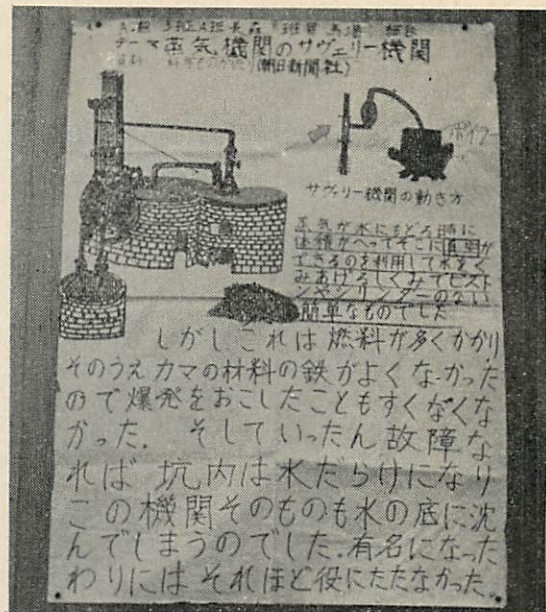 テーマ 蒸気機関のサヴェリー機関
(朝日新聞社)
ボイラー
サヴェリー機関の動き方
蒸気が水にもどる時に
体積がへってそこに真空が
できるのを利用して水をく
みあげるしくみでピスト
ンやシリンダーのない
簡単なものでした
しかしこれは燃料が多くかかり
そのうえカマの材料の鉄がよくなかった
ので爆発をおこしたこともすくなくな
かった。そしていったん故障な
れば坑内は水だらけになり
この機関そのものも水の底に沈
んでしまうのでした.有名になった
わりにはそれほど役にたたなかった。